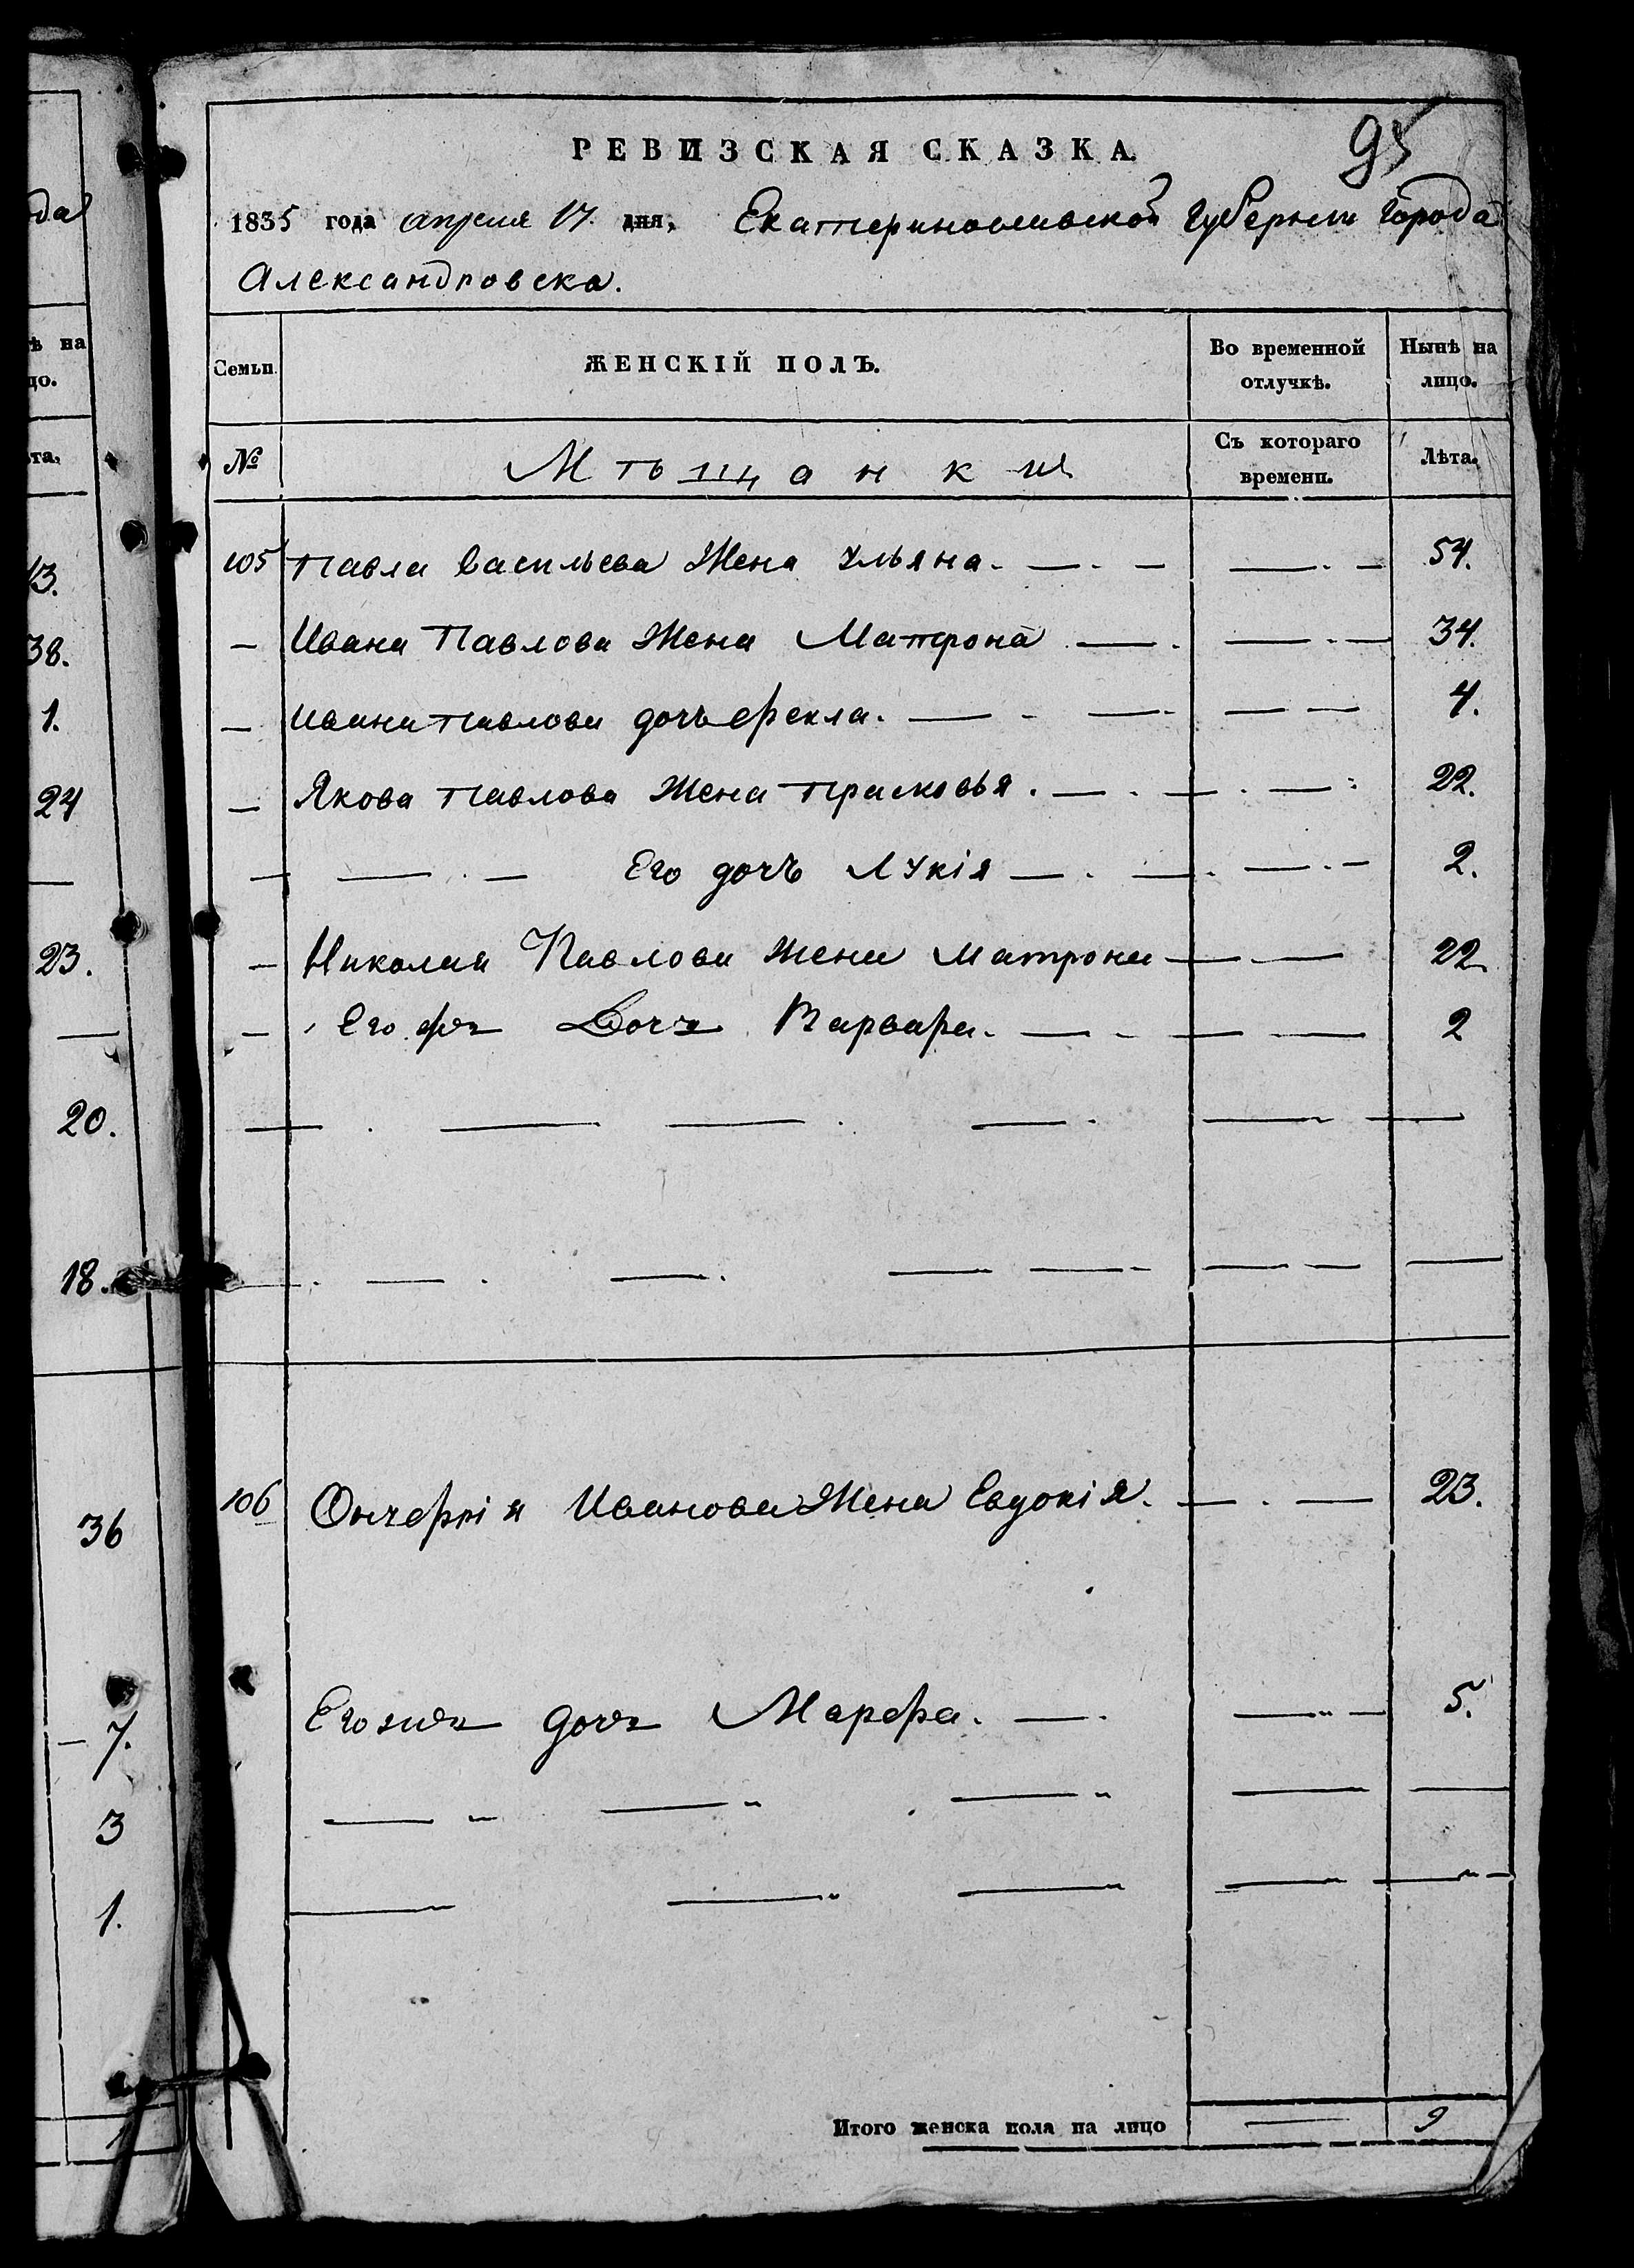 95
РЕВИЗСКАЯ СКАЗКА.
1835 года апреля 17. дня, Екатеринославской Губернии Города
Александровска.
Семьи. ЖЕНСКІЙ ПОЛЪ. Во временной отлучкѣ. Нынѣ на лицо.
№ Мѣщанки Съ котораго времени. Лѣта.
105 Павла Васильева Жена Ульяна. — . — — . — 54.
— Ивана Павлова Жена Матрона — . — . — 34.
— Ивана Павлова дочь Фекла. — . — . — — 4.
— Якова Павлова Жена Прасковья . — . — . — : 22.
— — . — Его дочь Лукія — . — . — . — 2.
— Николая Павлова Жена Матрона — — 22
— Его же Дочь Варвара. — . — — 2
106 Ончефрія Иванова Жена Евдокія. — . — 23.
Его же дочь Марфа. — . — „ — 5.
Итого женска пола на лицо — 9
ода
ѣ на
цо.
та,
13.
38.
1.
24
—
23.
—
20.
18.
36
— 7.
3
1.